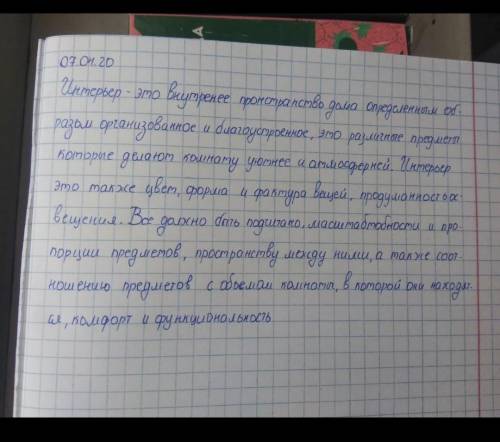 07.04.20
Интерьер - это внутренее пронстранство дома определенным об-
разом организованное и благоустроенное, это различные предметы
которые делают комнату уютнее и атмосферней. Интерьер
это также цвет, форма и фактура вещей, продуманность ос-
вещения. Все должно быть подчинено, масштабтобности и про-
порции предметов, пространству между ними, а также соот-
ношению предметов с объемом комнаты, в которой они находят-
ся, комфорт и функциональность